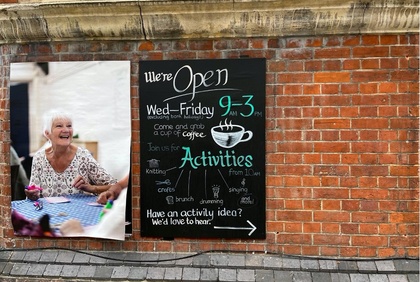 We're Open
Wed-Friday 9AM-3PM
(excluding bank holidays)
Come and grab
a cup of coffee
Join us for
Activities
Knitting
from 10am
crafts
brunch
drumming
singing
and more!
Have an activity idea?
We'd love to hear!